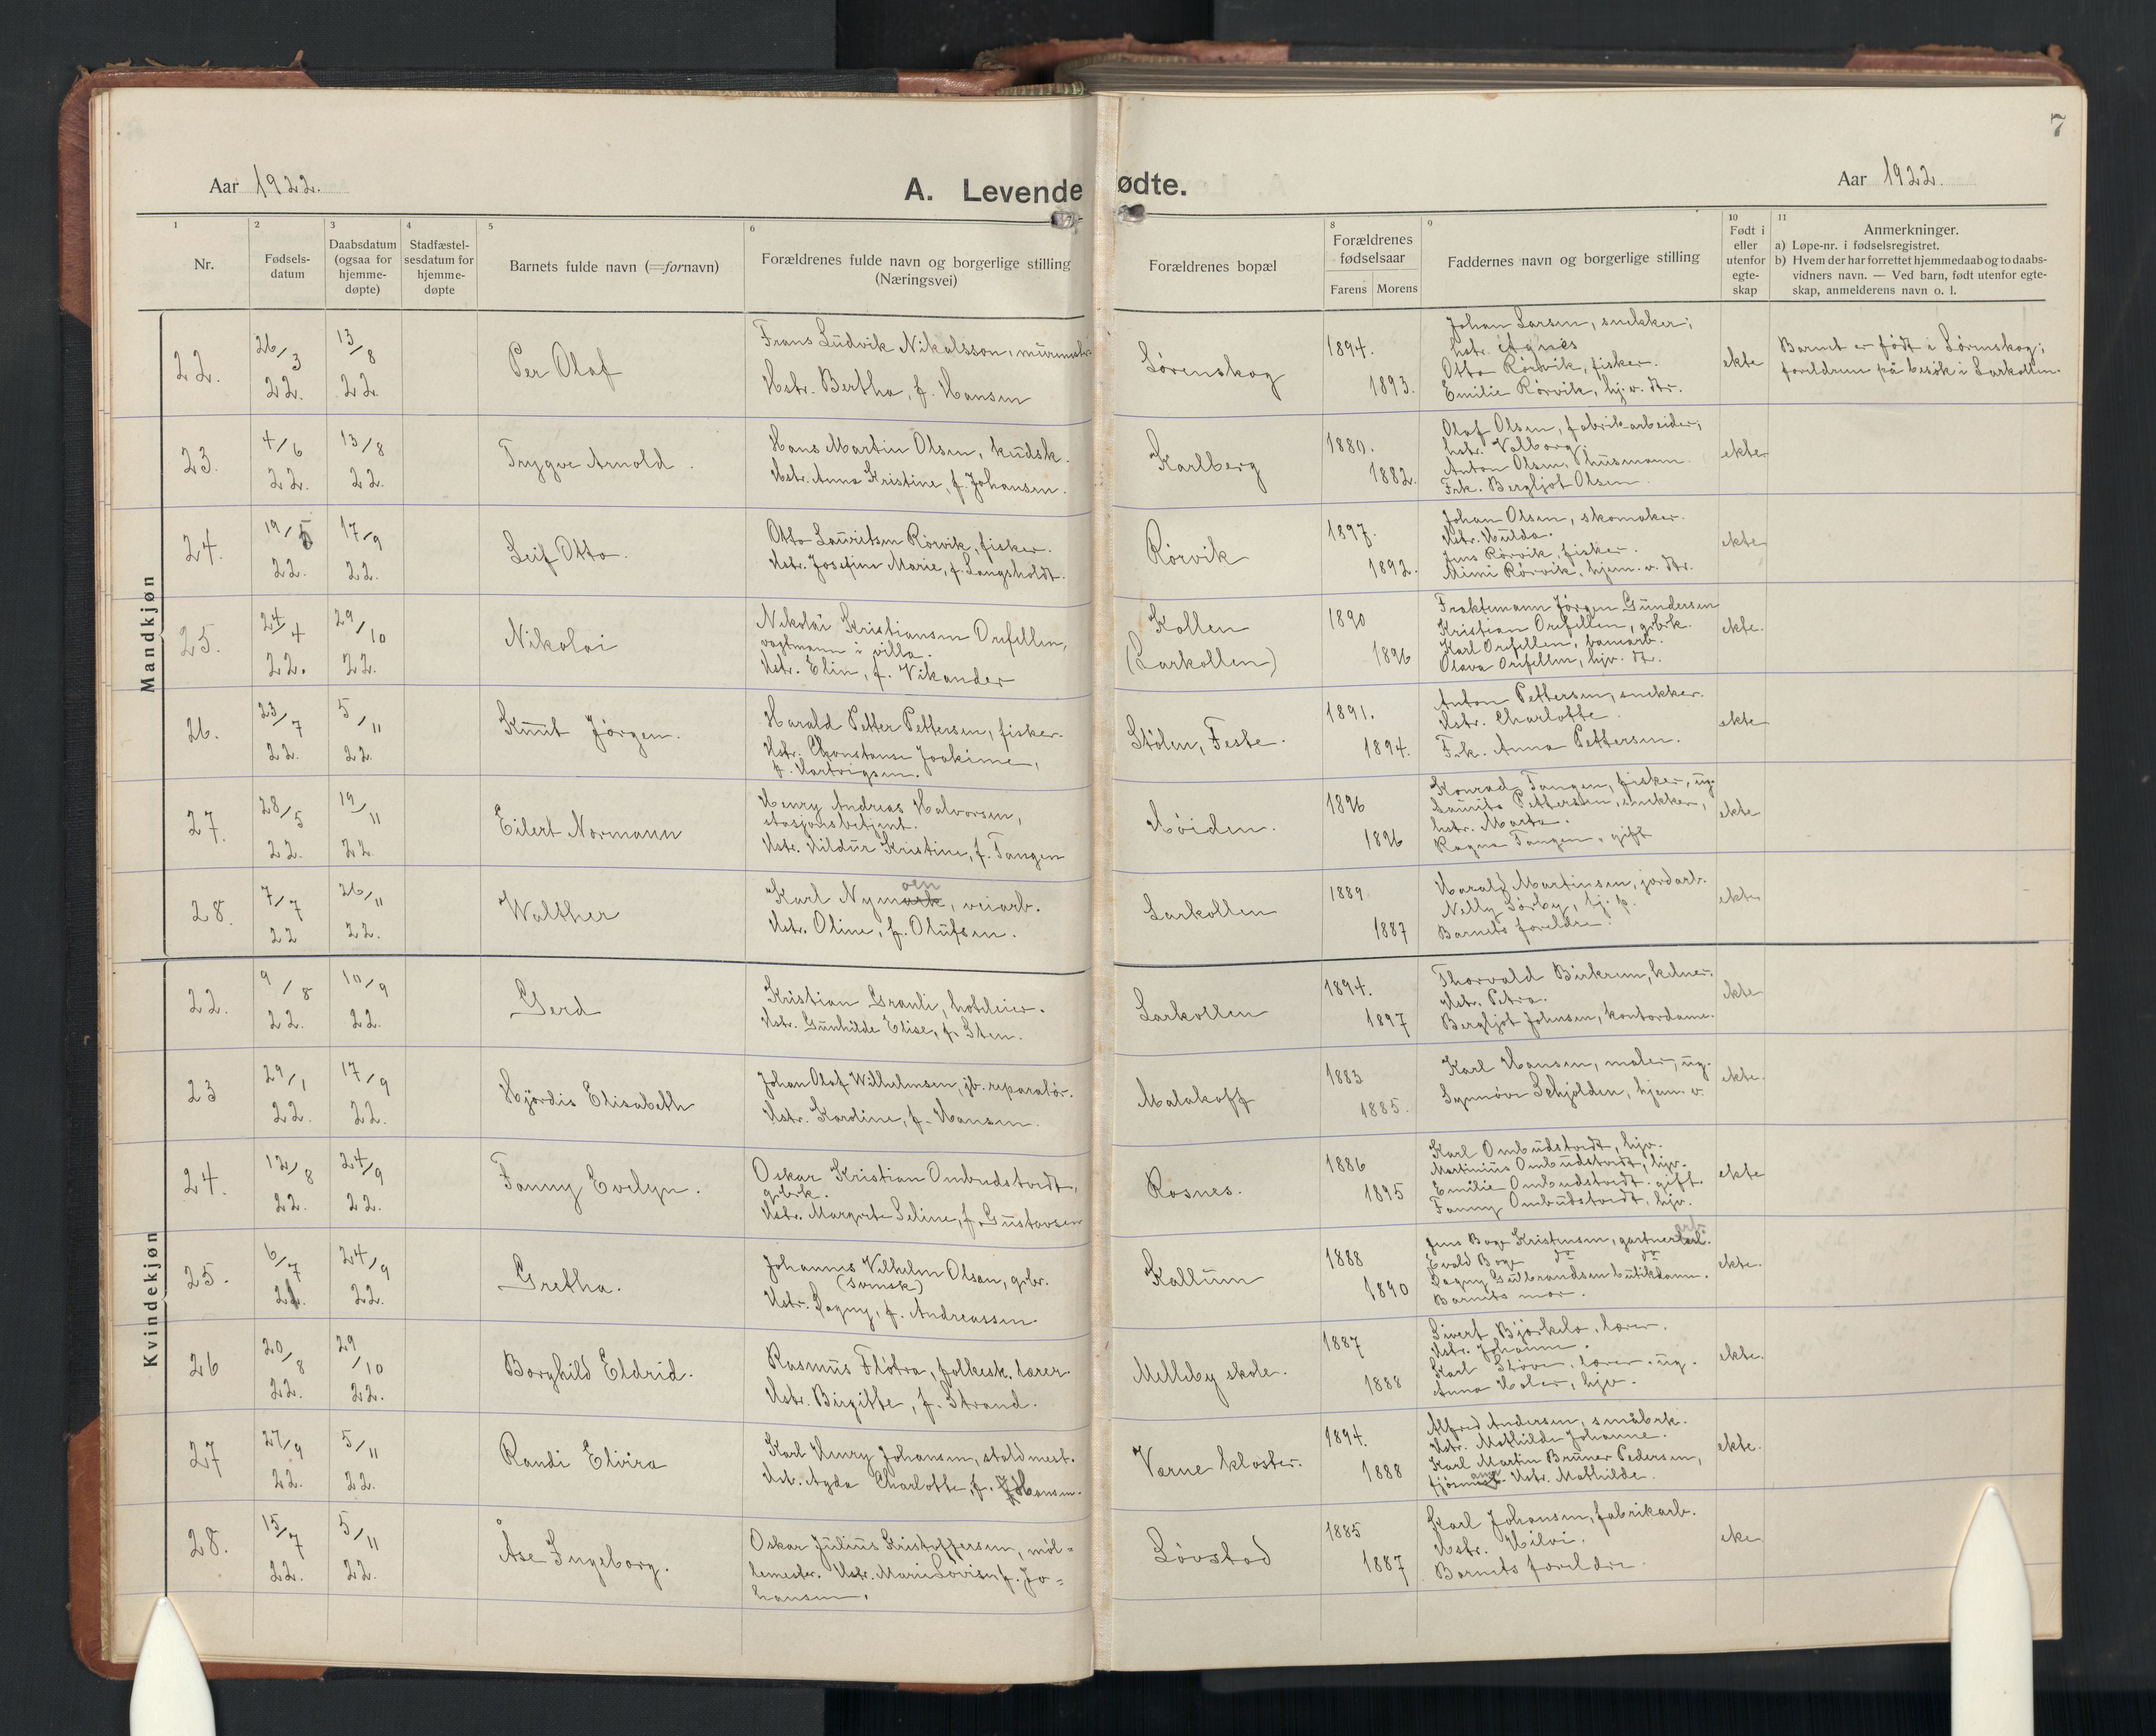 7
Aar 1922.
A. Levendefødte.
Aar 1922.
1 2 3 4 5 6 8 9 10 11
Nr.
Fødsels-
datum
Daabsdatum
(ogsaa for
hjemme-
døpte)
Stadfæstel-
sesdatum for
hjemme-
døpte
Barnets fulde navn (=fornavn)
Forældrenes fulde navn og borgerlige stilling
(Næringsvei)
Forældrenes bopæl
Forældrenes
fødselsaar
Farens Morens
Faddernes navn og borgerlige stilling
Født i
eller
utenfor
egte-
skap
Anmerkninger.
a) Løpe-nr. i fødselsregistret.
b) Hvem der har forrettet hjemmedaab og to daabs-
vidners navn. — Ved barn, født utenfor egte-
skap, anmelderens navn o. l.
Mandkjøn
22.
26/3
22.
13/8
22
Per Olaf
Frans Ludvik Nikalsson, murmster
Hstr. Bertha, f. Hansen
Sørenskog
1894.
1893.
Johan Larsen, snekker;
hstr. Agnes
Otto Rørvik, fisker.
Emilie Rørvik, hj. v. dtr.
ekte
Barnet er født i Sørenskog;
foreldrene på besøk i Larkollen.
23.
4/6
22.
13/8
22.
Trygve Arnold.
Hans Martin Olsen, kudsk.
Hstr. Anna Kristine, f. Johansen.
Karlberg
1880.
1882.
Olaf Olsen, fabrikarbeider;
hstr. Valborg.
Anton Olsen, husmann.
Frk. Bergljot Olsen
ekte
24.
19/5
22.
17/9
22.
Leif Otto.
Otto Lauritsen Rørvik, fisker.
Hstr. Josefine Marie, f. Langsholdt.
Rørvik
1897.
1892.
Johan Olsen, skomaker.
Hstr. Hulda.
Jens Rørvik, fisker.
Mimi Rørvik, hjem. v. dtr.
ekte
25.
24/4
22.
29/10
22.
Nikolai
Nikolai Kristiansen Orefellen,
vagtmann i villa.
Hstr. Elin, f. Vikander
Kollen
(Larkollen)
1890
1896
Fraktemann Jørgen Gundersen
Kristian Orefellen, grbrk.
Karl Orefellen, banearb.
Olava Orefellen, hjv. dtr.
ekte.
26.
23/7
22.
5/11
22.
Knut Jørgen.
Harald Petter Pettersen, fisker.
Hstr. Chonstanse Joakime,
f. Hartvigsen.
Stølen, Feste.
1891.
1894.
Anton Pettersen, snekker.
Hstr. Charlotte.
Frk. Anna Pettersen.
ekte
27.
28/5
22.
19/11
22
Eilert Normann
Henry Andreas Halvorsen,
stasjonsbetjent.
Hstr. Hildur Kristine, f. Tangen
Høiden.
1896
1896
Konrad Tangen, fisker, ug.
Laurits Pettersen, snekker,
hstr. Marta.
Ragna Tangen, gift
ekte
28.
7/7
22
26/11
22.
Walther
oen
Karl Nymark, veiarb.
Hstr. Oline, f. Olufsen.
Larkollen
1889
1887
Harald Martinsen, jordarb.
Nelly Sørby, hj. p.
Barnets foreldre.
ekte
Kvindekjøn
22.
9/8
22.
10/9
22.
Gerd
Kristian Granli, hoteleier.
Hstr. Gunhilde Elise, f. Sten.
Larkollen
1894.
1897
Thorvald Birkrem, kelner.
Hstr. Petra.
Bergljot Johnsen, kontordame.
ekte
23
29/1
22.
17/9
22.
Hjørdis Elisabeth
Johan Olaf Wilhelmsen, jb. reparatør.
Hstr. Karoline, f. Hansen.
Malakoff
1883
1885.
Karl Hansen, maler, ug.
Synnøve Schjolden, hjem. v.
ekte.
24.
12/8
22.
24/9
22.
Fanny Evelyn.
Oskar Kristian Ombudstvedt,
grbrk.
Hstr. Margrete Seline, f. Gustavsen
Rosnes.
1886
1895
Karl Ombudstvedt, hjv.
Martinius Ombudstvedt, hjv.
Emilie Ombudstvedt, gift.
Fanny Ombudstvedt, hjv.
ekte
25.
6/7
21.
24/9
22.
Gretha.
Johannes Vilhelm Olsan, grbr.
(svensk)
Hstr. Dagny, f. Andreassen.
Kallum
1888
1890
Jens Boge Kristensen, gartner
Evald Boge do do
Dagny Gulbrandsen butikdame.
Barnets mor.
ekte.
26
20/8
22.
29/10
22.
Borghild Eldrid.
Rasmus Fløtra, folkesk. lærer
Hstr. Birgitte, f. Strand.
Melleby skole.
1887
1888
Sivert Bjørkelo, lærer.
Hstr. Johanne.
Karl Støve, lærer. ug.
Anna Holer, hjv.
ekte.
27
27/9
22.
5/11
22.
Randi Elvira
Karl Henry Johansen, staldmest.
Hst. Agda Charlotte, f. Hansen.
Værne kloster.
1894.
1888
Alfred Andersen, småbrk.
Hstr. Mathilde Johanne.
Karl Martin Bruner Pedersen,
Hstr. Mathilde.
ekte.
28.
15/7
22.
5/11
22.
Åse Ingeborg.
Oskar Julius Kristoffersen, møl=
lemester. Hstr. Marie Lovise f. Jo=
hansen.
Løvstad
1885
1887
Karl Johansen, fabrikarb.
Hstr. Hilvi.
Barnets foreldre.
eke